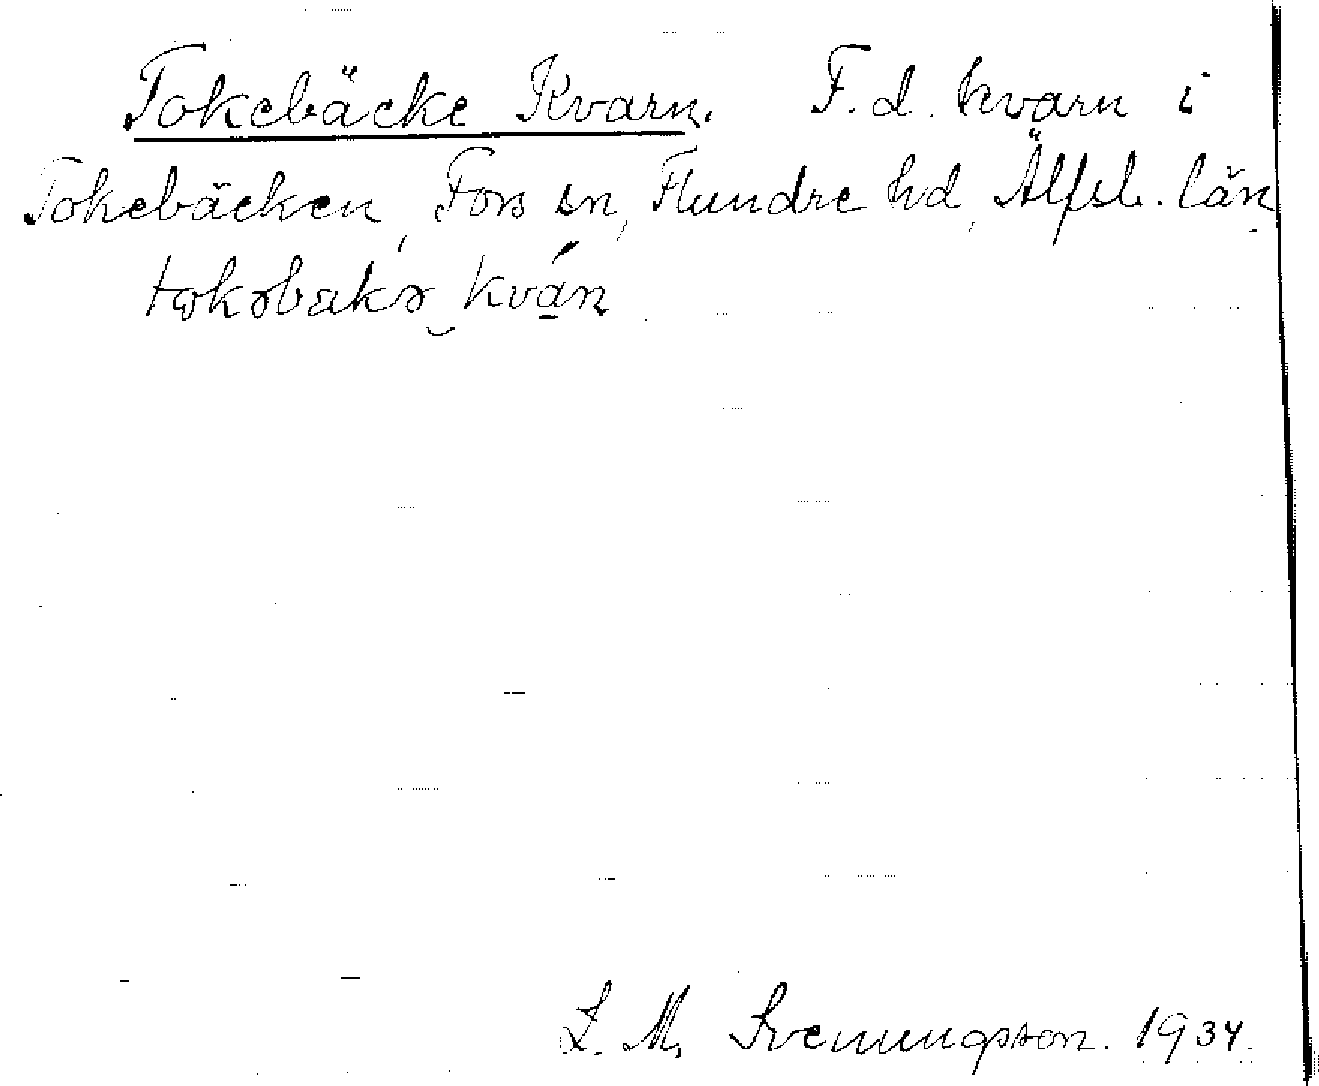 Tokebäcke Kvarn. F. d. kvarn i
Tokebäcken, Fors sn, Flundre hd, Älfsb. län.
tokəbakə kván
L. M. Svenungsson. 1934.